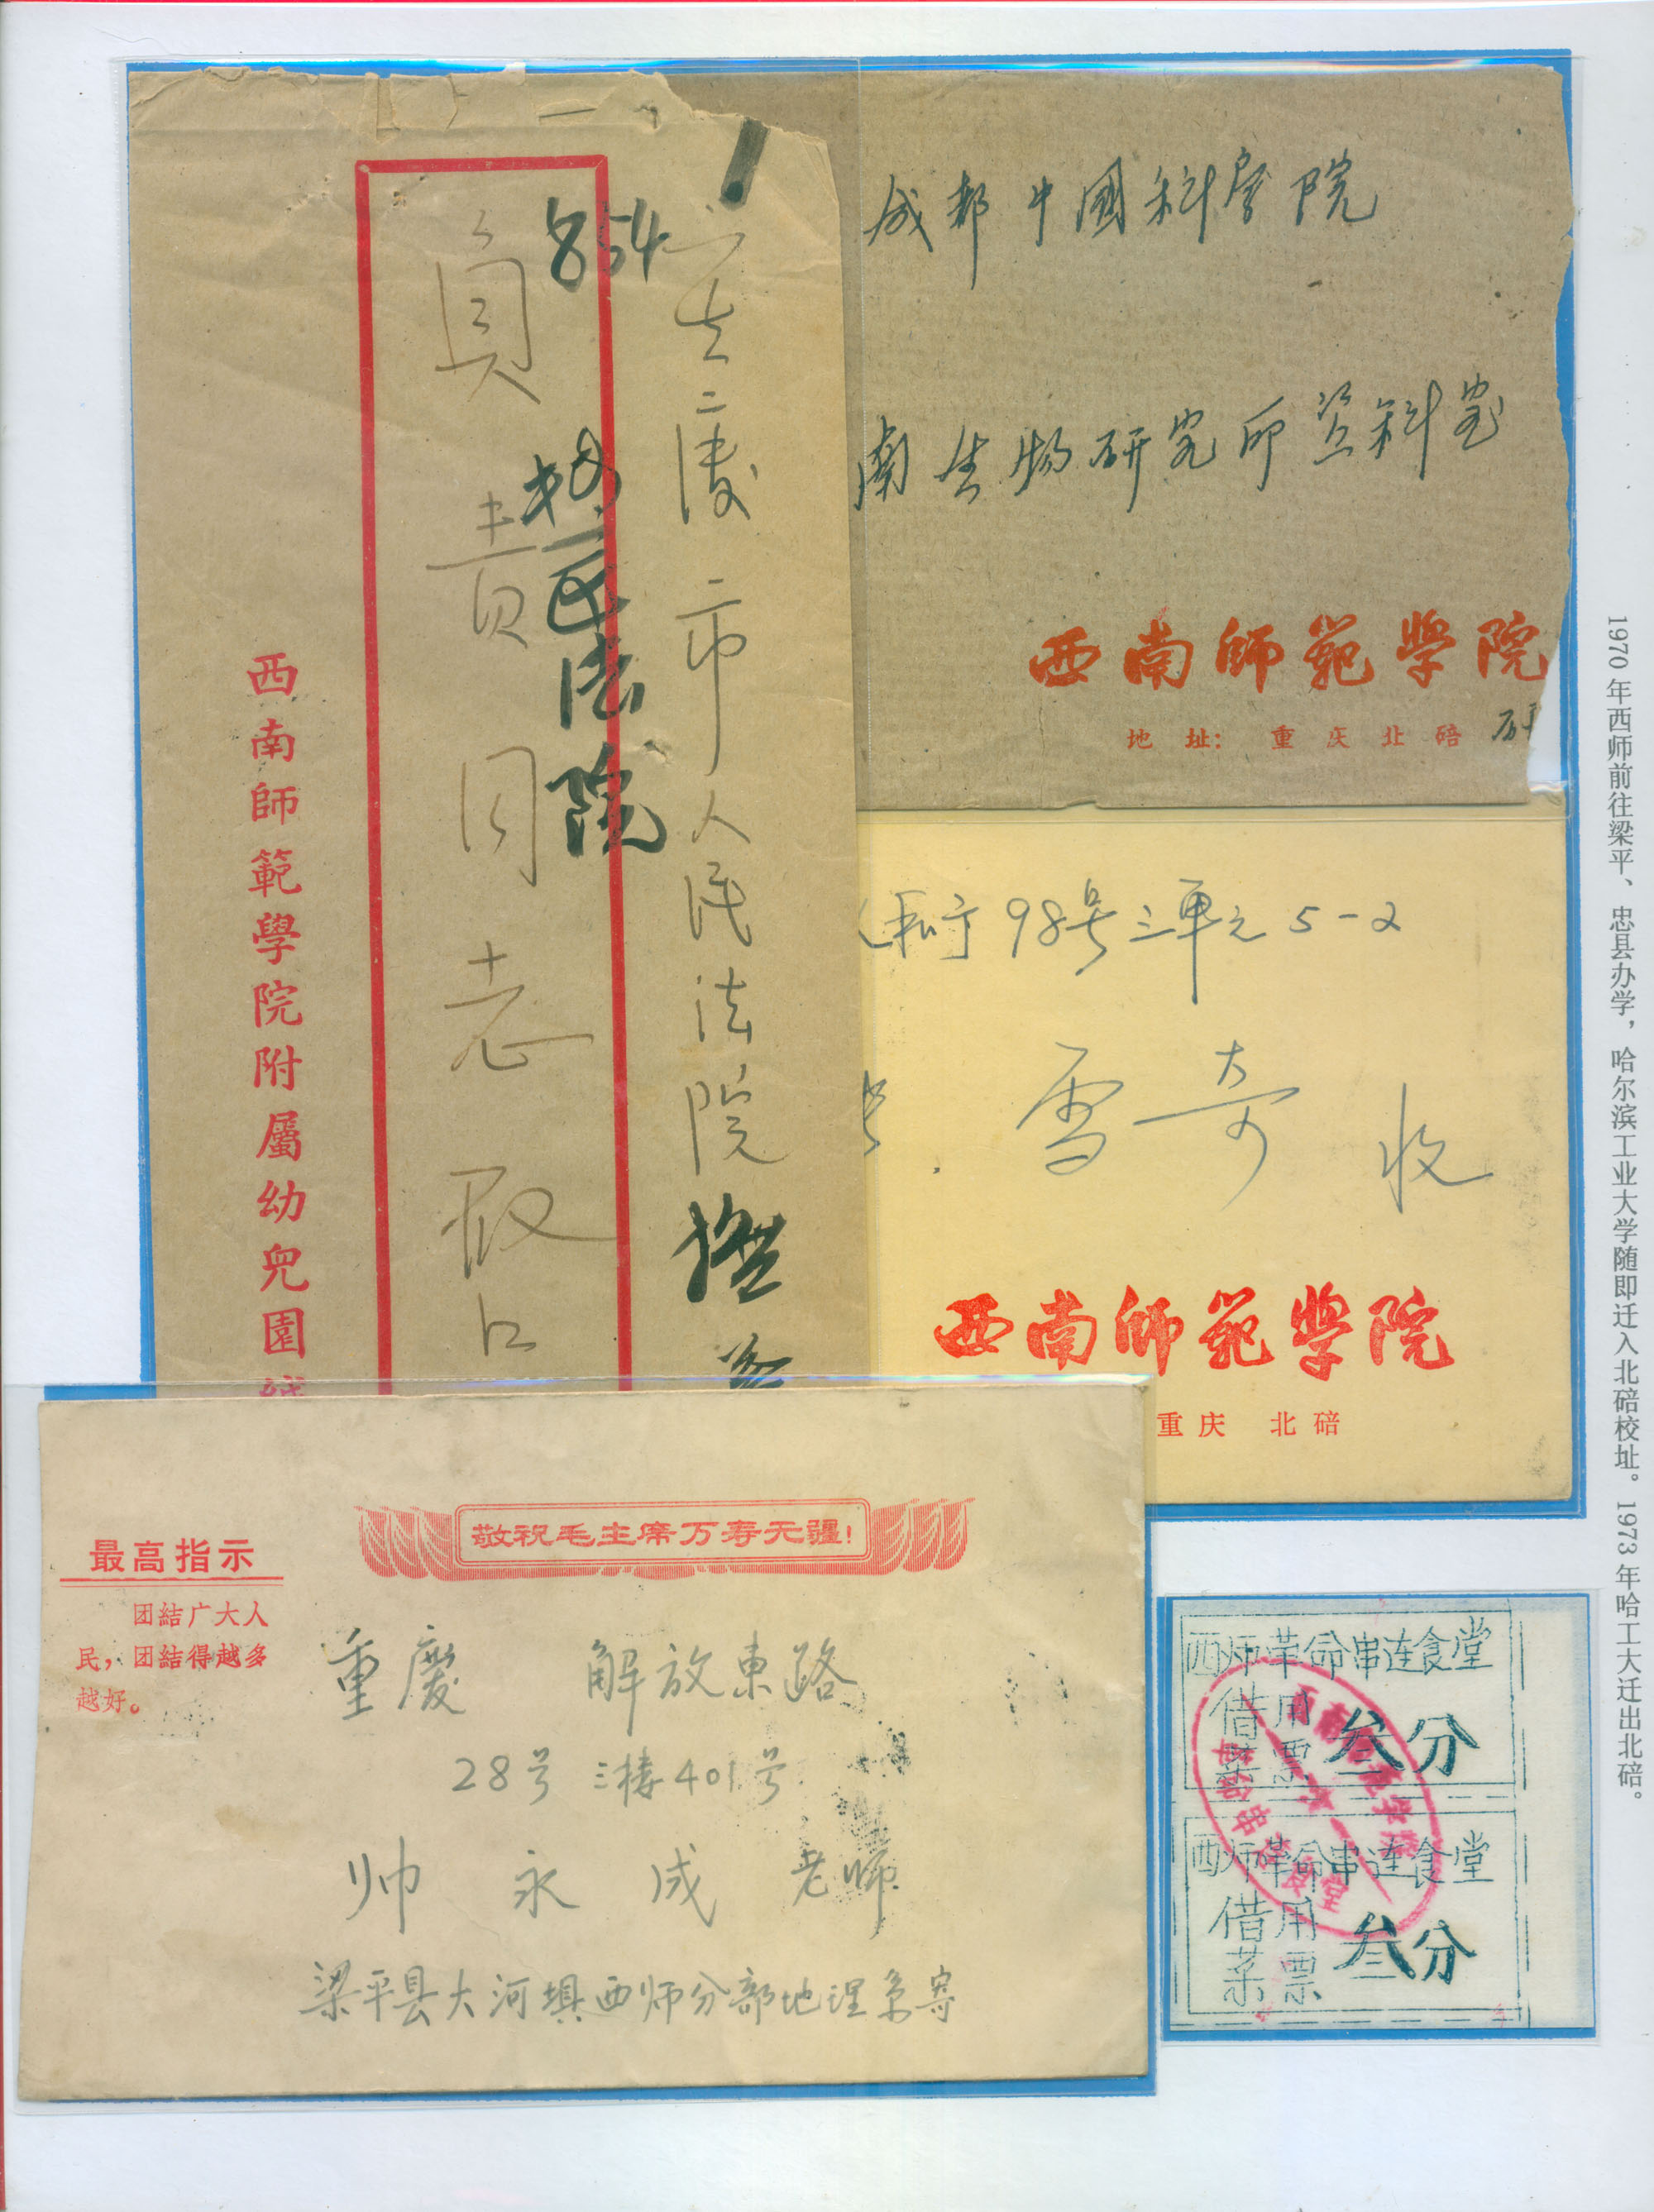 成都中國科学院
南生物研究所资料室
西南师范学院
地址：重庆北碚
市人民法院
854
法院
負責同志
西南師範學院附屬幼兒園
98号三单元5-2
雪奇 收
西南师范学院
重庆 北碚
敬祝毛主席万寿无疆！
最高指示
团結广大人
民，团結得越多
越好。
重慶 解放東路
28号 三楼401号
帅永成老师
梁平县大河填西师分部地理系寄
西师革命串连食堂
借用
菜票
叁分
西师革命串连食堂
借用
菜票
叁分
1970年西师前往梁平、忠县办学，哈尔滨工业大学随即迁入北碚校址。1973年哈工大迁出北碚。